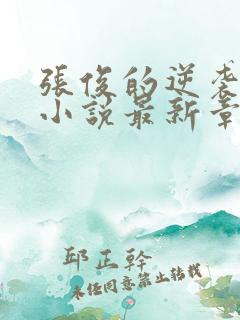 張俊的逆袭
小說最新章
邱正幹
未经同意禁止转载